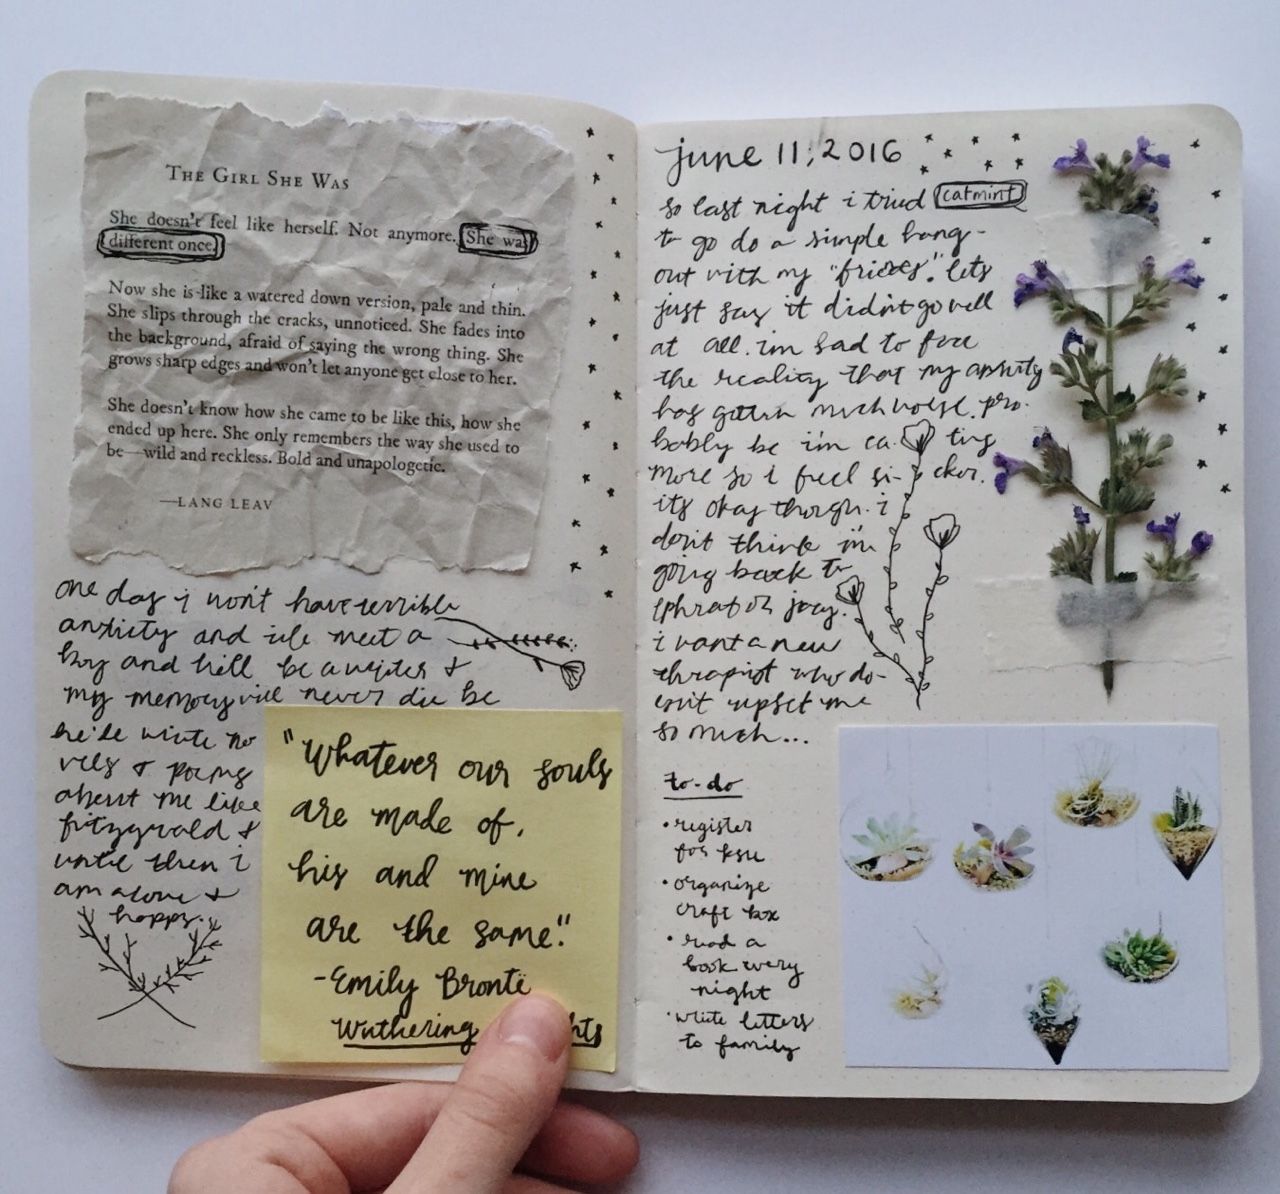 THE GIRL SHE WAS
She doesn't feel like herself. Not anymore. She was
different once.
Now she is like a watered down version, pale and thin.
She slips through the cracks, unnoticed. She fades into
the background, afraid of saying the wrong thing. She
grows sharp edges and won't let anyone get close to her.
She doesn't know how she came to be like this, how she
ended up here. She only remembers the way she used to
be—wild and reckless. Bold and unapologetic.
—LANG LEAV
one day i won't have terrible
anxiety and i'll meet a
boy and he'll be a writer &
my memory will never die bc
he'll write no
vels & poems
about me like
fitzgerald &
until then i
am alone &
happy.
"Whatever our souls
are made of,
his and mine
are the same."
-Emily Brontë
Wuthering hts
june 11, 2016
so last night i tried catmint
to go do a simple hang-
out with my "friends". lets
just say it didn't go well
at all. im sad to face
the reality that my anxiety
has gotten much worse. pro-
bably bc i'm ea ting
more so i feel si- cker.
its okay though. i
don't think i'm
going back to
i want a new
therapist who do-
esn't upset me
so much...
to-do
•register
for ksu
•organize
craft box
•read a
book every
night
•write letters
to family